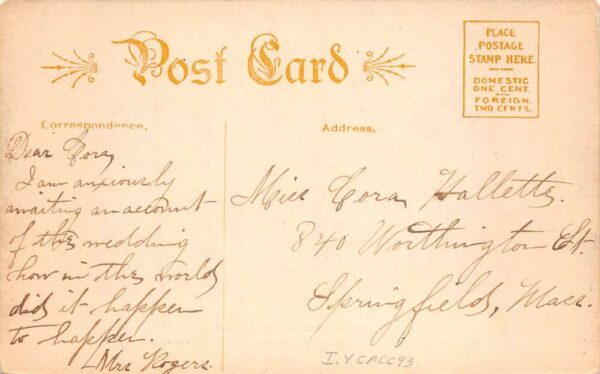 Post Card
PLACE
POSTAGE
STAMP HERE.
DOMESTIC
ONE CENT.
FOREIGN.
TWO CENTS.
Correspondence.
Address.
Dear Cora,
I am anxiously
awaiting an account
of the wedding
how in the world
did it happen
to happen...
Mrs Rogers.
Miss Cora Hallette.
840 Worthington St.
Springfield, Mass.
I.Y CACC93